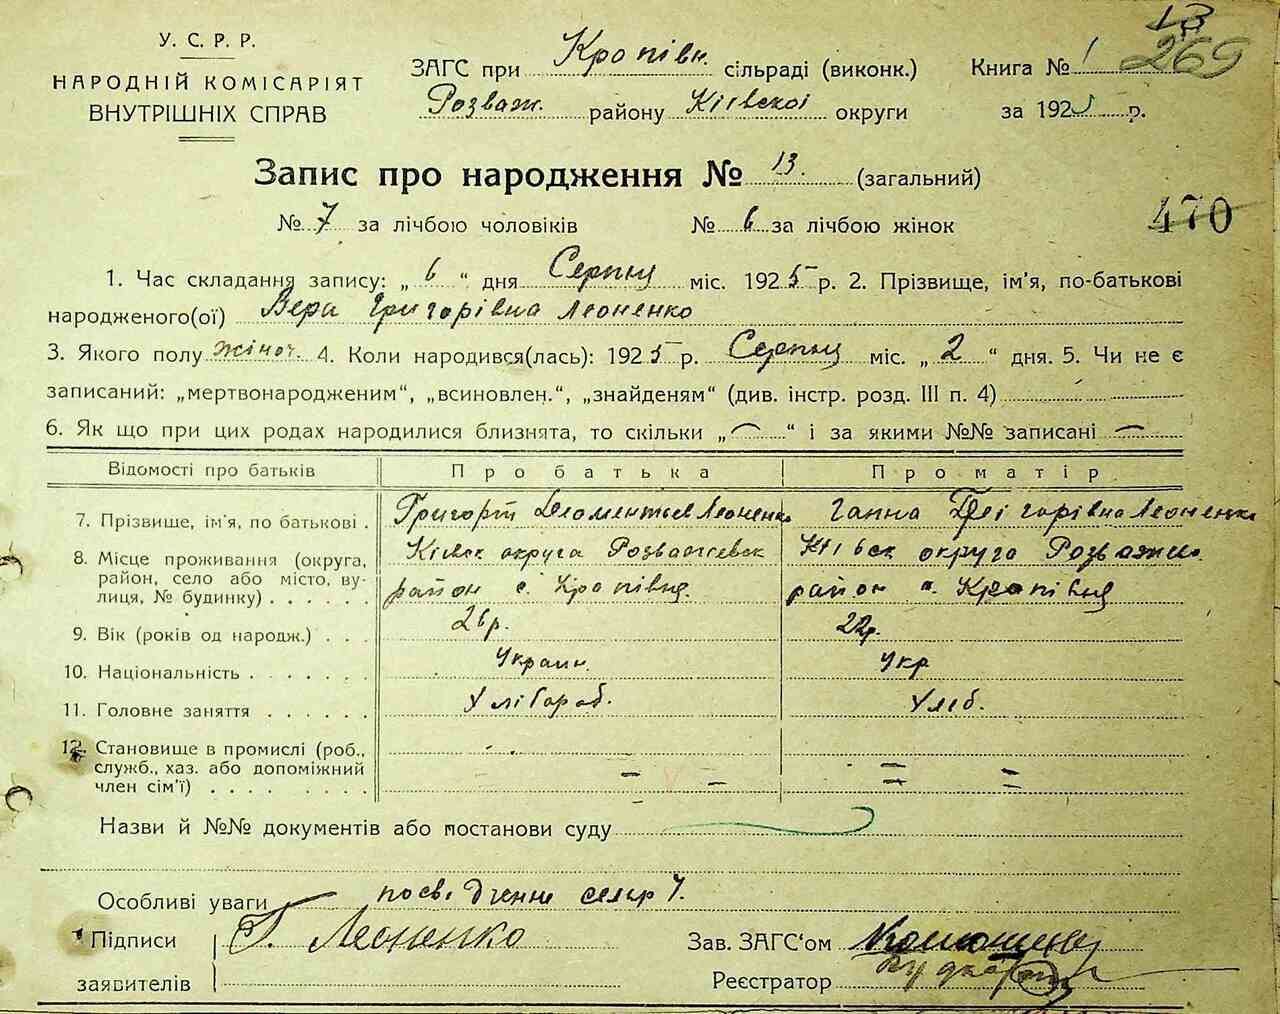 У. С. Р. Р.
НАРОДНІЙ КОМІСАРІЯТ
ВНУТРІШНІХ СПРАВ
ЗАГС при Кропівн. сільраді (виконк.)
Розваж. району Київскої округи
Книга № 1
269
за 1925 р.
Запис про народження № 13. (загальний)
№ 7 за лічбою чоловіків № 6 за лічбою жінок
470
1. Час складання запису: „ 6 “ дня Серпня міс. 1925 р. 2. Прізвище, ім'я, по-батькові
народженого(ої) Вера Григорівна Леоненко
3. Якого полу жіноч. 4. Коли народився(лась): 1925 р. Серпня міс. „ 2 “ дня. 5. Чи не є
записаний: „мертвонародженим“, „всиновлен.“, „знайденям“ (див. інстр. розд. III п. 4)
6. Як що при цих родах народилися близнята, то скільки „ — “ і за якими №№ записані —
Відомості про батьків Про батька Про матір
7. Прізвище, ім'я, по батькові . Григорій Леоненко Ганна Григорівна Леоненко
8. Місце проживання (округа, район, село або місто, вулиця, № будинку) . . . . . Київск округа Розважевск район с. Кропівня. Київск округа Розваже. район с. Кропівня
9. Вік (років од народж.) . . . 26 р. 22 р.
10. Національність . . . . . . Украин. Укр
11. Головне заняття . . . . . . У хлібороб. У хліб.
12. Становище в промислі (роб., служб., хаз. або допоміжний член сім'ї) . . . . . . . . – – = =
Назви й №№ документів або постанови суду
Особливі уваги посвідченне сельр
Підписи заявителів Г. Леоненко
Зав. ЗАГС'ом
Реєстратор